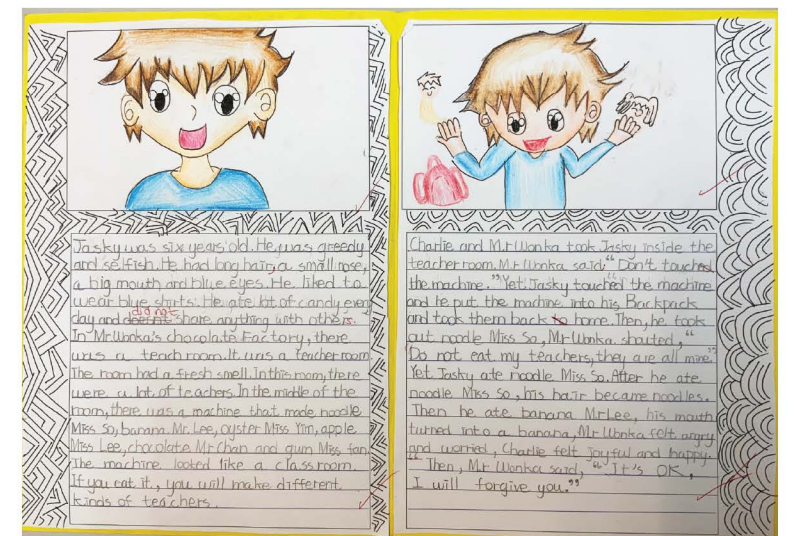 Jasky was six years old. He was greedy
and selfish. He had long hair, a small nose,
a big mouth and blue eyes. He liked to
wear blue shirts. He ate lot of candy every
day and did not share anything with others.
In Mr Wonka's chocolate Factory, there
was a teach room. It was a teacher room.
The room had a fresh smell. In this room, there
were a lot of teachers. In the middle of the
room, there was a machine that made noodle
Miss So, banana Mr. Lee, oyster Miss Yim, apple
Miss Lee, chocolate Mr Chan and gum Miss fan.
The machine looked like a classroom.
If you eat it, you will make different
kinds of teachers.
Charlie and Mr Wonka took Jasky inside the
teacher room. Mr Wonka said, "Don't touched
the machine." Yet Jasky touched the machine
and he put the machine into his Backpack
and took them back to home. Then, he took
out noodle Miss So, Mr Wonka shouted, "
Do not eat my teachers, they are all mine."
Yet Jasky ate noodle Miss So. After he ate
noodle Miss So, his hair became noodles.
Then he ate banana Mr Lee, his mouth
turned into a banana, Mr Wonka felt angry
and worried, Charlie felt joyful and happy.
" Then, Mr Wonka said, "It's OK,
I will forgive you."